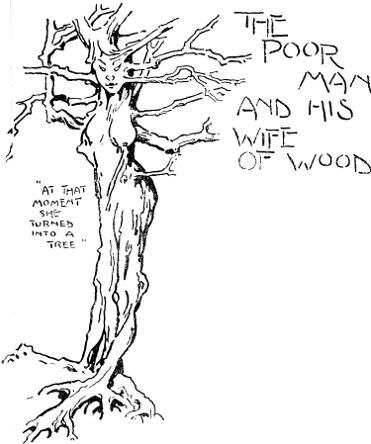 THE
POOR
MAN
AND HIS
WIFE
OF WOOD
"AT THAT
MOMENT
SHE
TURNED
INTO A
TREE"